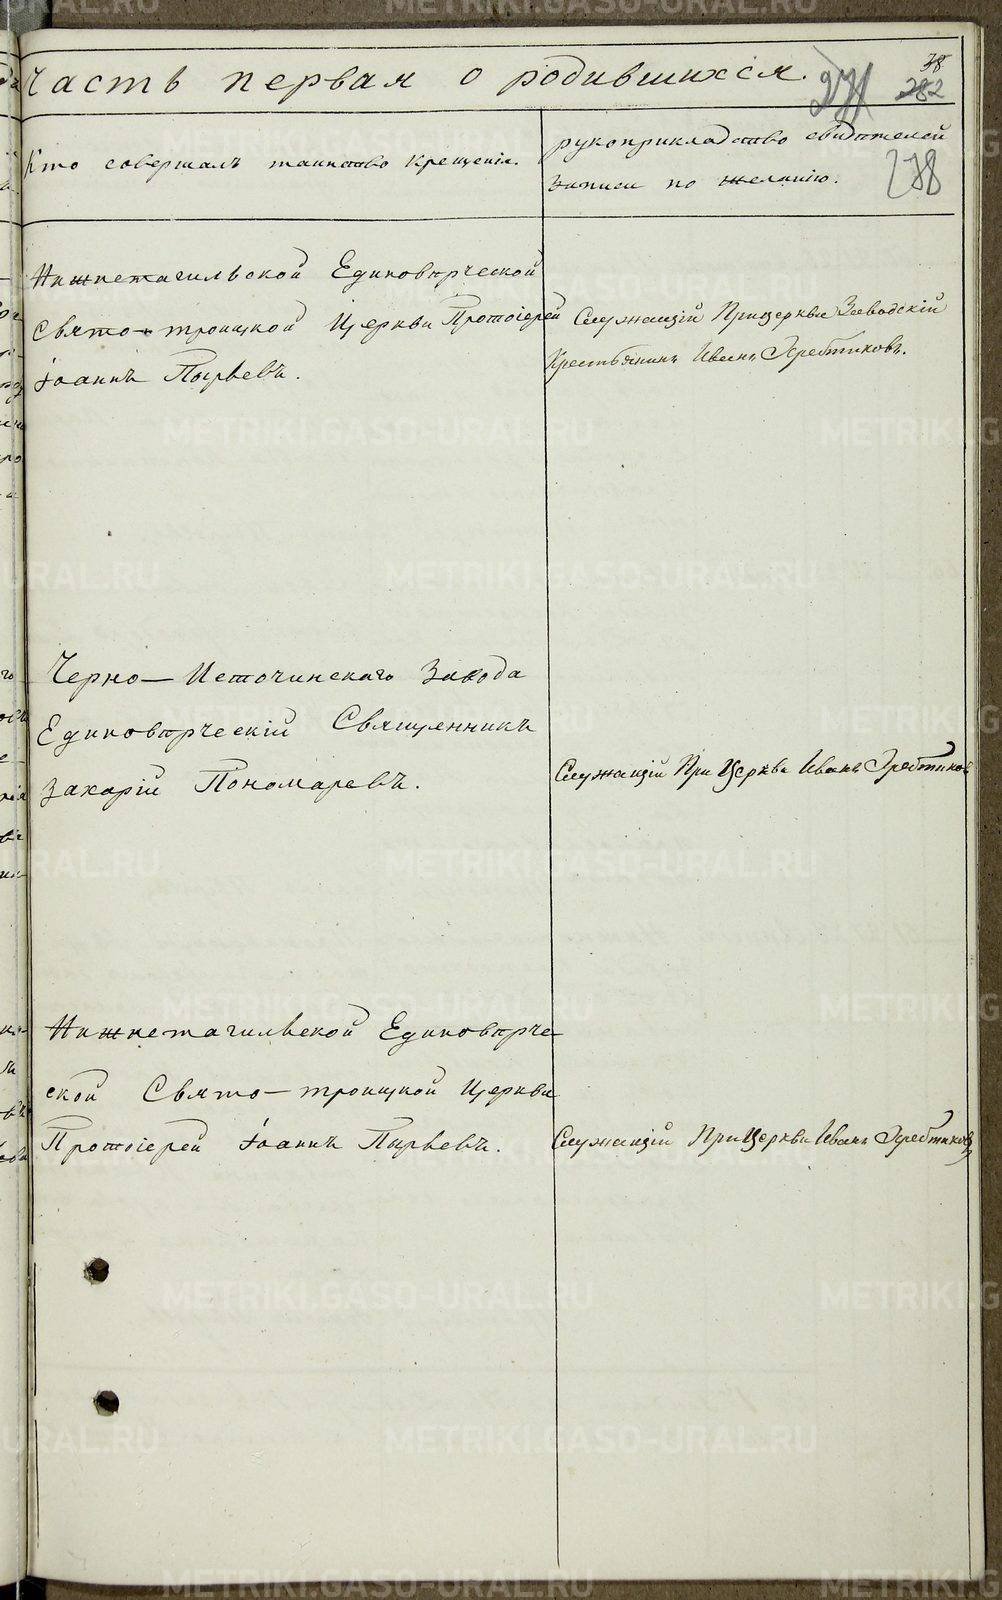 Часть первая о родившихся.
38
271 282
Кто совершалъ таинство крещенія.
рукоприкладство свидѣтелей
записи по желанію.
278
Нижнетагильской Единовѣрческой
Свято-троицкой Церкви Протоіерей
Іоаннъ Пырьевъ.
Служащій Прицеркви Заводскій
Крестьянинъ Иванъ Гребтиковъ.
Черно-Источинскаго Завода
Единовѣрческій Священникъ
Захарій Пономаревъ.
Служащій При Церкви Иванъ Гребтиковъ
Нижнетагильской Единовѣрче-
ской Свято-троицкой Церкви
Протоіерей Іоаннъ Пырьевъ.
Служащій При Церкви Иванъ Гребтиковъ
METRIKI.GASO-URAL.RU